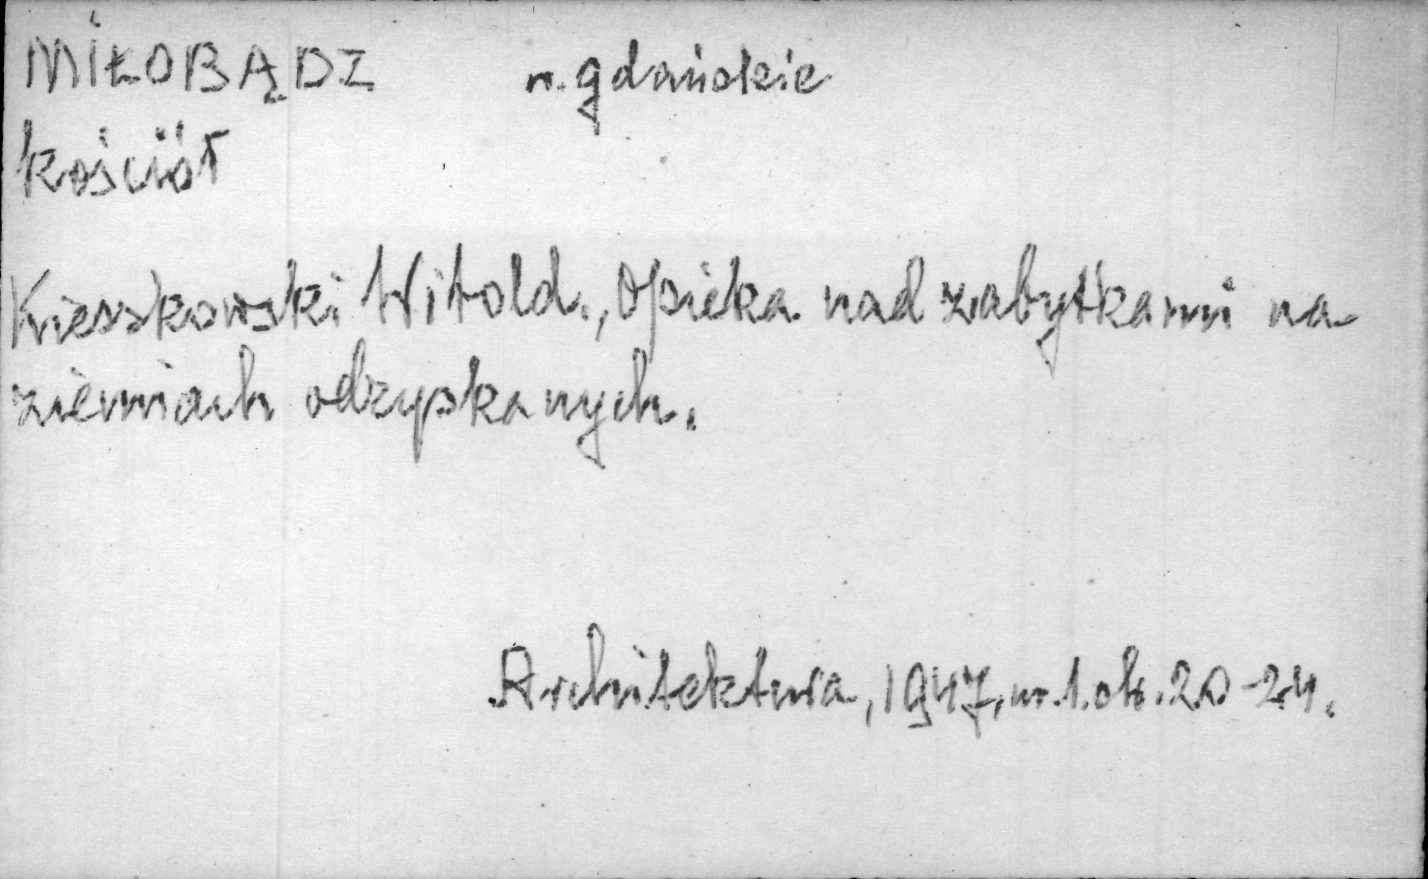 MIŁOBĄDZ w. gdańskie
kościół
Kieszkowski Witold., Opieka nad zabytkami na
ziemiach odzyskanych.
Architektura, 1947, nr. 1. str. 20-24.